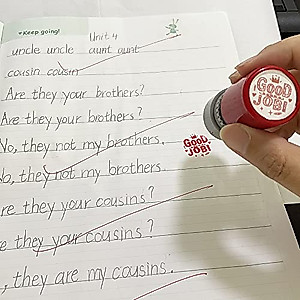 Keep going!
Unit 4
uncle uncle aunt aunt
cousin cousin
Are they your brothers?
Are they your brothers?
No, they not my brothers.
No, they not my brothers.
Are they your cousins?
re they your cousins?
, they are my cousins.
GOOD JOB!
GOOD JOB!